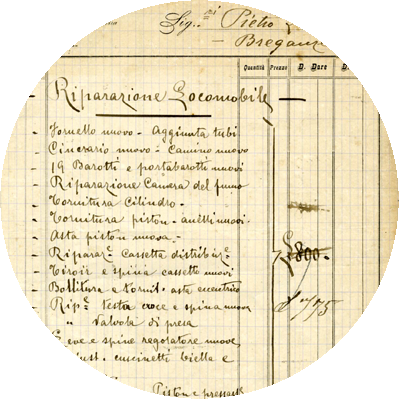 Sig.ri Pietro
Breganze
Quantità Prezzo D. Dare D.
Riparazione Locomobile
Fornello nuovo - Aggiunta tubi
Cinerario nuovo - Camino nuovo
19 Barotti e portabarotti nuovi
Riparazione Camera del fumo
Tornitura Cilindro -
Tornitura piston - anelli nuovi -
Asta piston nuova -
Ripar.e Cassetta distribuz.e £ 800 -
Tiroir e spina cassetto nuovi
Bollitura e tornit. asta eccentrico
Rip.e testa croce e spina nuova £ 775
" Valvola di presa
e spine regolatore nuove
cuscinetti biella e
Piston e pressa